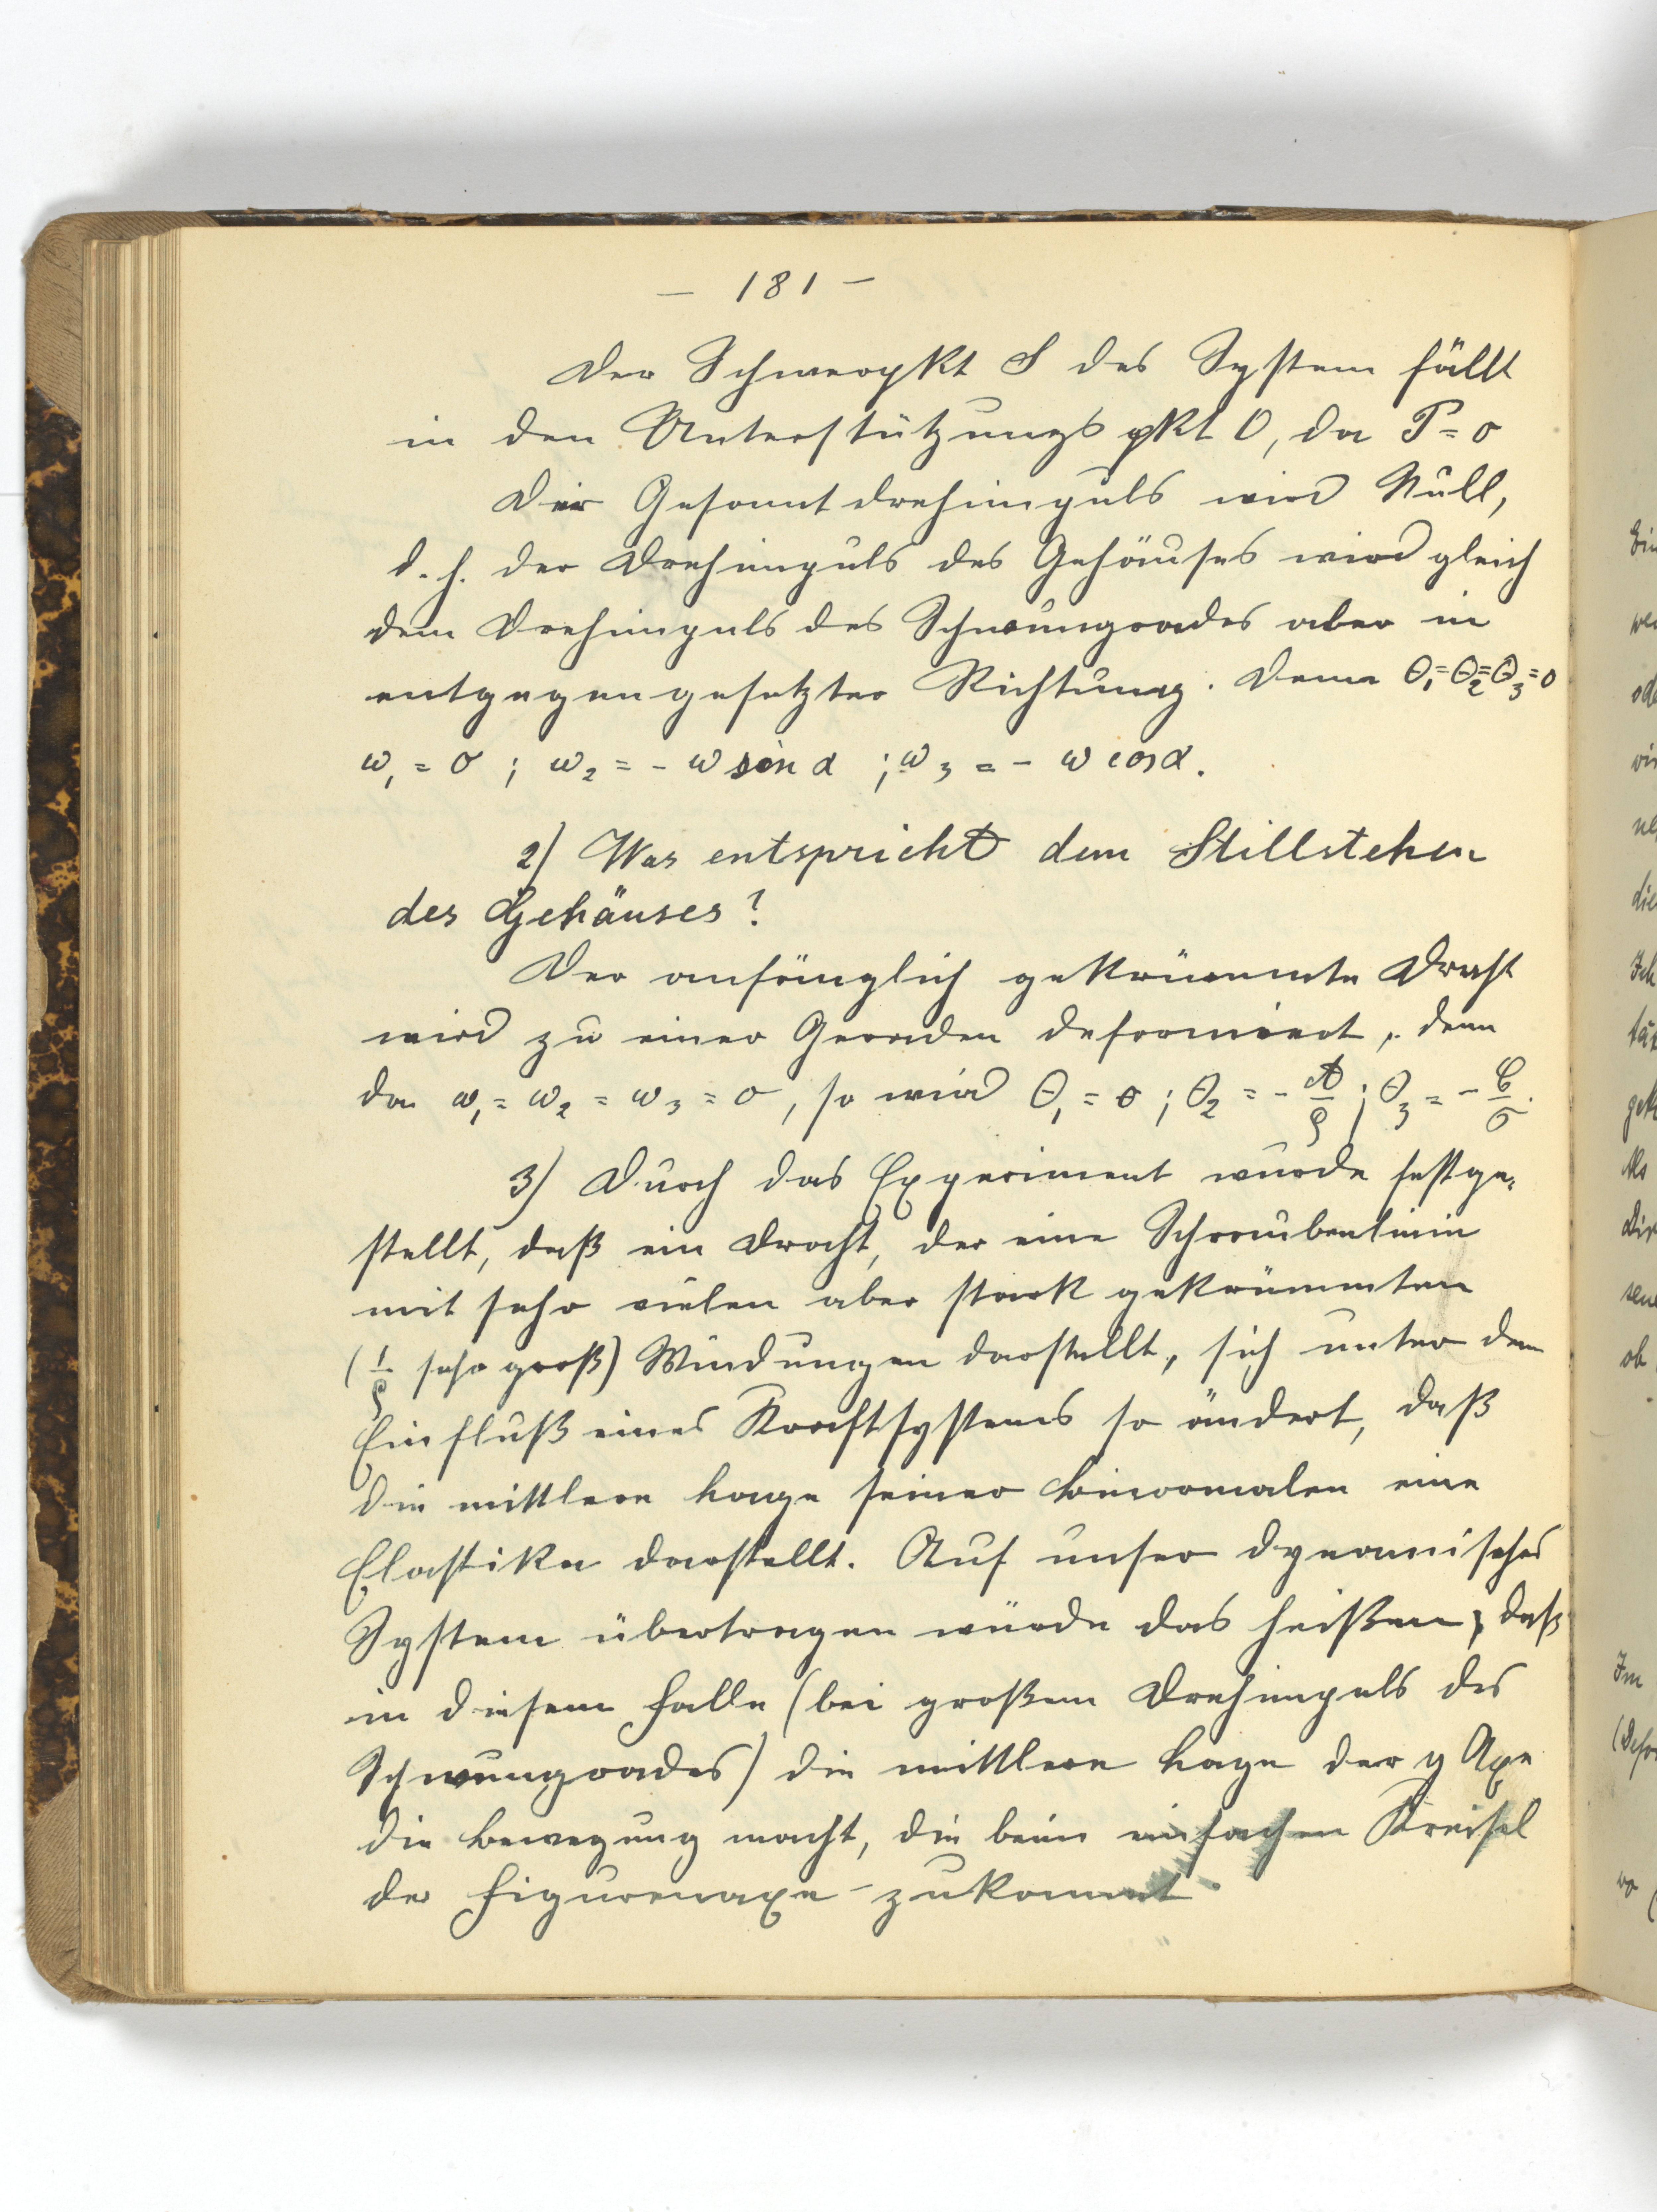 — 181 —
Der Schwerpkt S des System fällt
in den Unterstützungspkt O, da P = o
Der Gesamtdrehimpuls wird Null,
d. h. der Drehimpuls des Gehäuses wird gleich
dem Drehimpuls des Schwungrades aber in
entgegengesetzter Richtung. Denn Θ₁=Θ₂=Θ₃=0
ω₁ = 0 ; ω₂ = - ω sin α ; ω₃ = - ω cos α.
2) Was entspricht dem Stillstehen
des Gehäuses?
Der anfänglich gekrümmte Draht
wird zu einer Geraden deformiert, denn
da ω₁ = ω₂ = ω₃ = 0, so wird Θ₁ = 0 ; Θ₂ = - A/ρ ; Θ₃ = - C/σ.
3) Durch das Experiment wurde festge-
stellt, daß ein Draht, der eine Schraubenlinie
mit sehr vielen aber stark gekrümmten
(1/ρ sehr groß) Windungen darstellt, sich unter dem
Einfluß eines Kraftsystems so ändert, daß
die mittlere Lage seiner Binormalen eine
Elastika darstellt. Auf unser dynamisches
System übertragen würde das heißen, daß
in diesem Falle (bei großem Drehimpuls des
Schwungrades) die mittlere Lage der y Axe
die Bewegung macht, die beim einfachen Kreisel
der Figurenaxe zukommt.
Ein
ob
Im